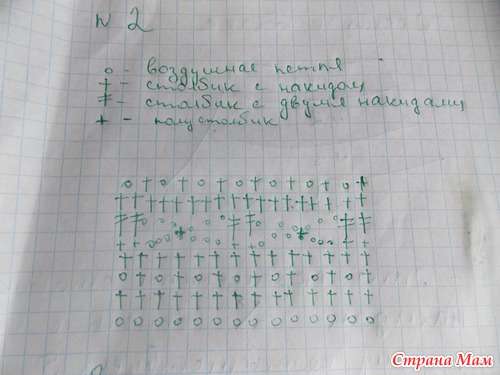 N 2
o - воздушная петля
† - столбик с накидом
‡ - столбик с двумя накидами
+ - полустолбик
Страна Мам